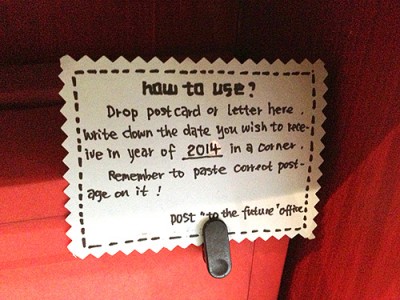 how to use?
Drop postcard or letter here.
Write down the date you wish to rece-
ive in year of 2014 in a corner.
Remember to paste correct post-
age on it !
post "to the future" office